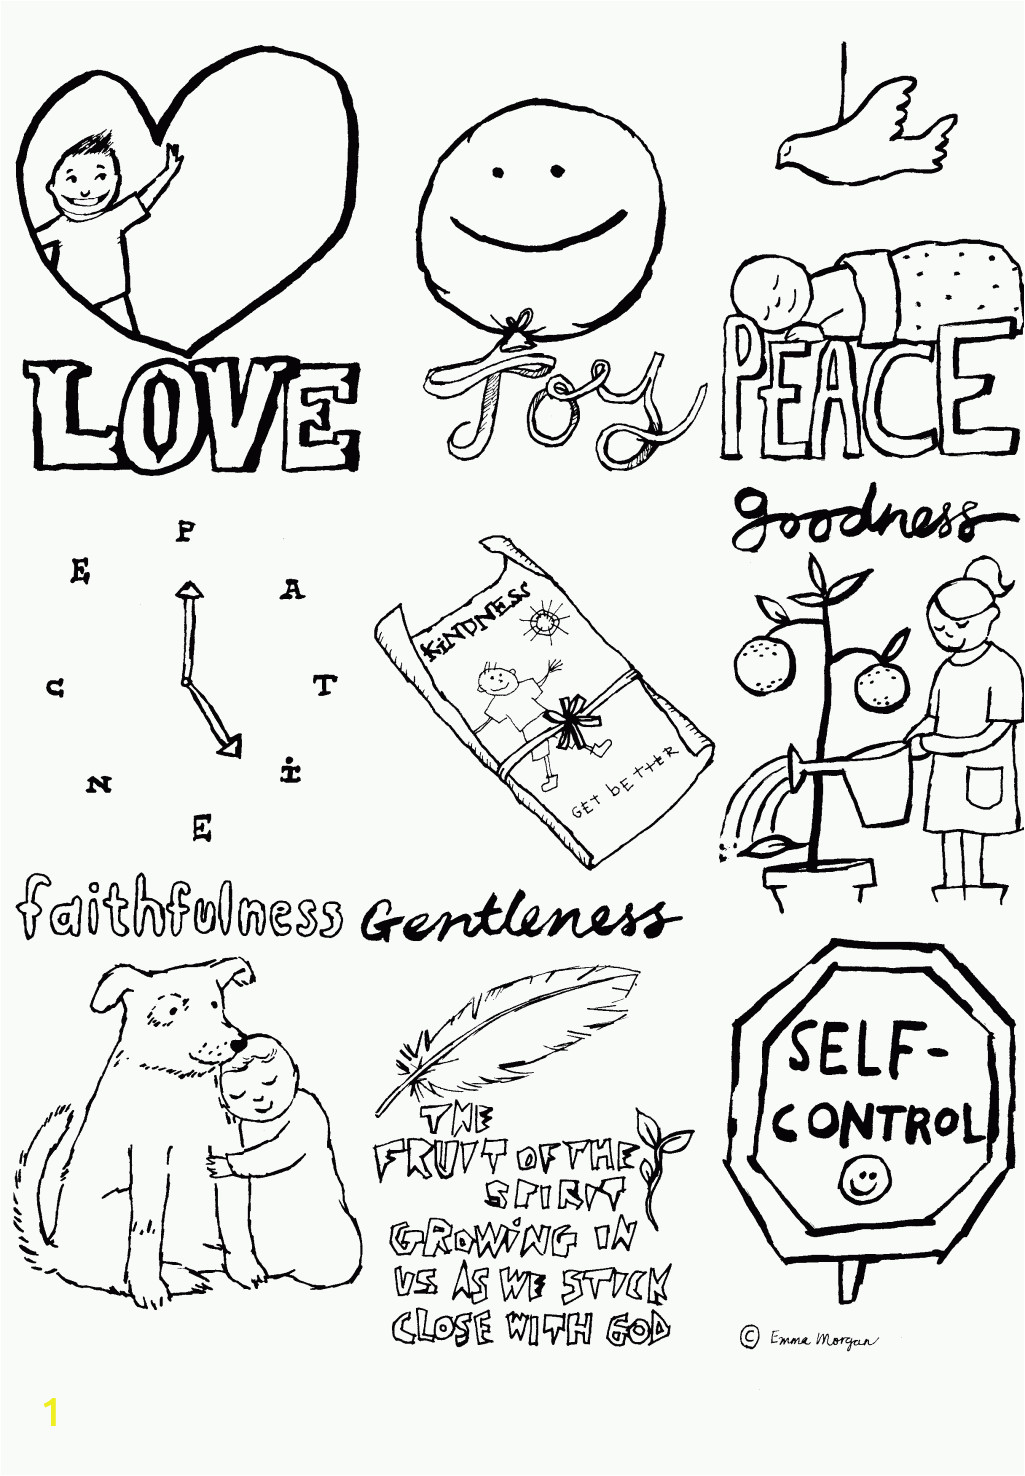 LOVE
Joy
PEACE
PATiENCE
KiNDNESS
GET bETTER
goodness
faithfulness
Gentleness
THE
FRUIT OF THE
SPIRIT
GROWiNG IN
US AS WE STICK
CLOSE WITH GOD
SELF-
CONTROL
© Emma Morgan
1